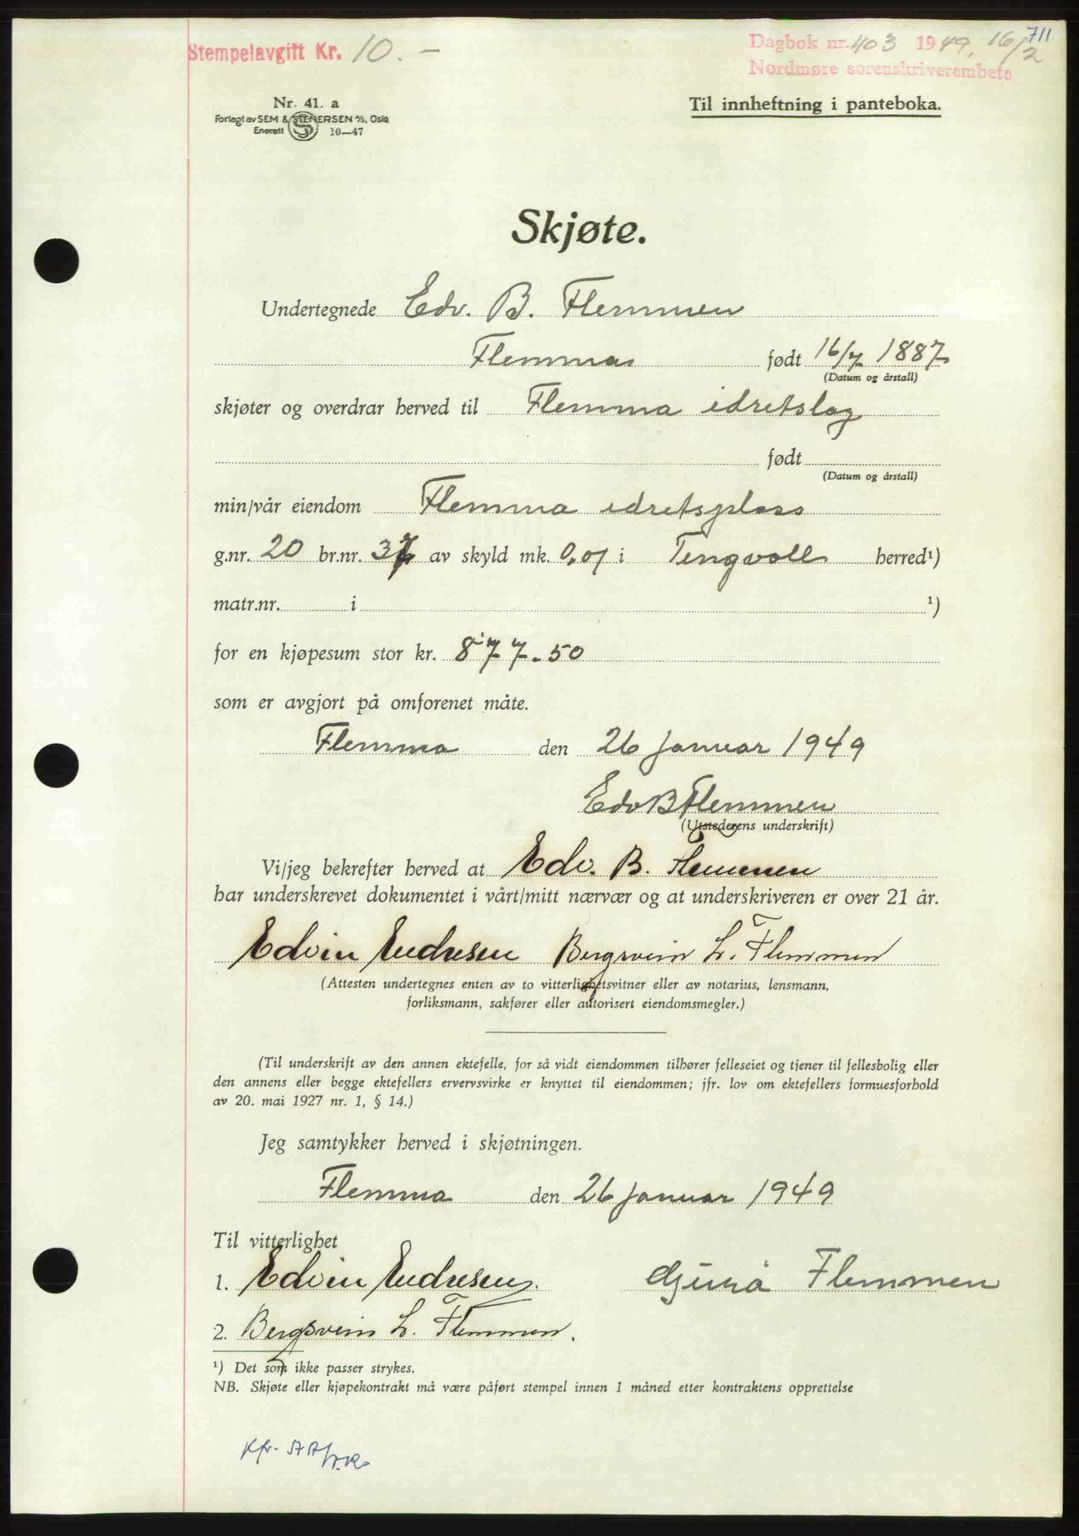 711
Stempelavgift Kr. 10.-
Dagbok nr. 403 1949, 16/2
Nordmøre sorenskriverembete
Nr. 41. a
Forlagt av SEM & STENERSEN A/S, Oslo
Enerett S 10—47
Til innheftning i panteboka.
Skjøte.
Undertegnede Edv. B. Flemmen
Flemma født 16/7 1887
(Datum og årstall)
skjøter og overdrar herved til Flemma idretslag
født
(Datum og årstall)
min/vår eiendom Flemma idretsplass
g.nr. 20 br.nr. 37 av skyld mk. 0,01 i Tingvoll herred¹)
matr.nr. i ¹)
for en kjøpesum stor kr. 877.50
som er avgjort på omforenet måte.
Flemma den 26 januar 1949
Edv B Flemmen
(Utstederens underskrift)
Vi/jeg bekrefter herved at Edv. B. Flemmen
har underskrevet dokumentet i vårt/mitt nærvær og at underskriveren er over 21 år.
Edvin Endresen Bergsvein L. Flemmen
(Attesten undertegnes enten av to vitterlighetsvitner eller av notarius, lensmann,
forliksmann, sakfører eller autorisert eiendomsmegler.)
(Til underskrift av den annen ektefelle, for så vidt eiendommen tilhører felleseiet og tjener til fellesbolig eller
den annens eller begge ektefellers ervervsvirke er knyttet til eiendommen; jfr. lov om ektefellers formuesforhold
av 20. mai 1927 nr. 1, § 14.)
Jeg samtykker herved i skjøtningen.
Flemma den 26 januar 1949
Til vitterlighet
1. Edvin Endresen. Flemmen
2. Bergsvein L. Flemmen.
¹) Det som ikke passer strykes.
NB. Skjøte eller kjøpekontrakt må være påført stempel innen 1 måned etter kontraktens opprettelse